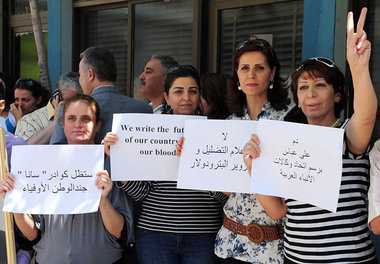 ستظل كوادر "سانا"
جند الوطن الأوفياء
We write the fu
of our country
our blood
لا
علام التضليل و
زوير البترودولار
علي عباس
برسم اتحاد وكالات
الأنباء العربية